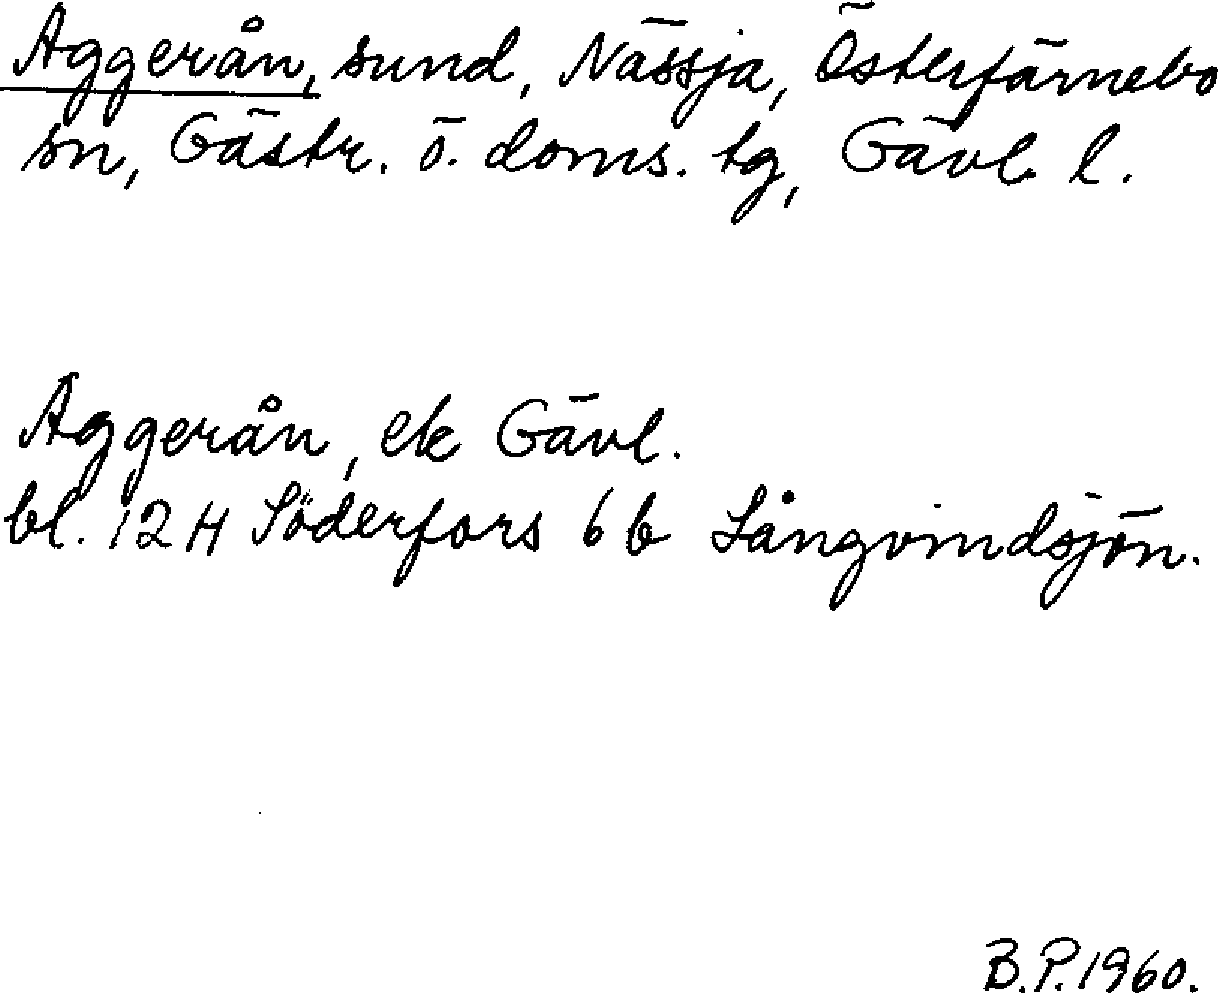 Aggerån, sund, Nässja, Österfärnebo
sn, Gästr. ö. doms. tg, Gävl. l.
Aggerån, ek Gävl.
bl. 12 H Söderfors 6 b Långvindsjön.
B.P. 1960.